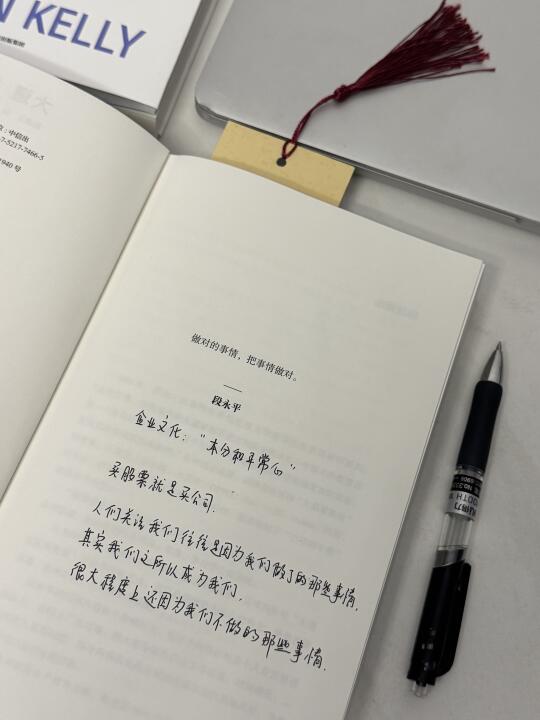 N KELLY
中信出
7-5217-7466-5
940 号
做对的事情，把事情做对。
——
段永平
企业文化：“本分和平常心”
买股票就是买公司.
人们关注我们往往是因为我们做了的那些事情.
其实我们之所以成为我们.
很大程度上还因为我们不做的那些事情.